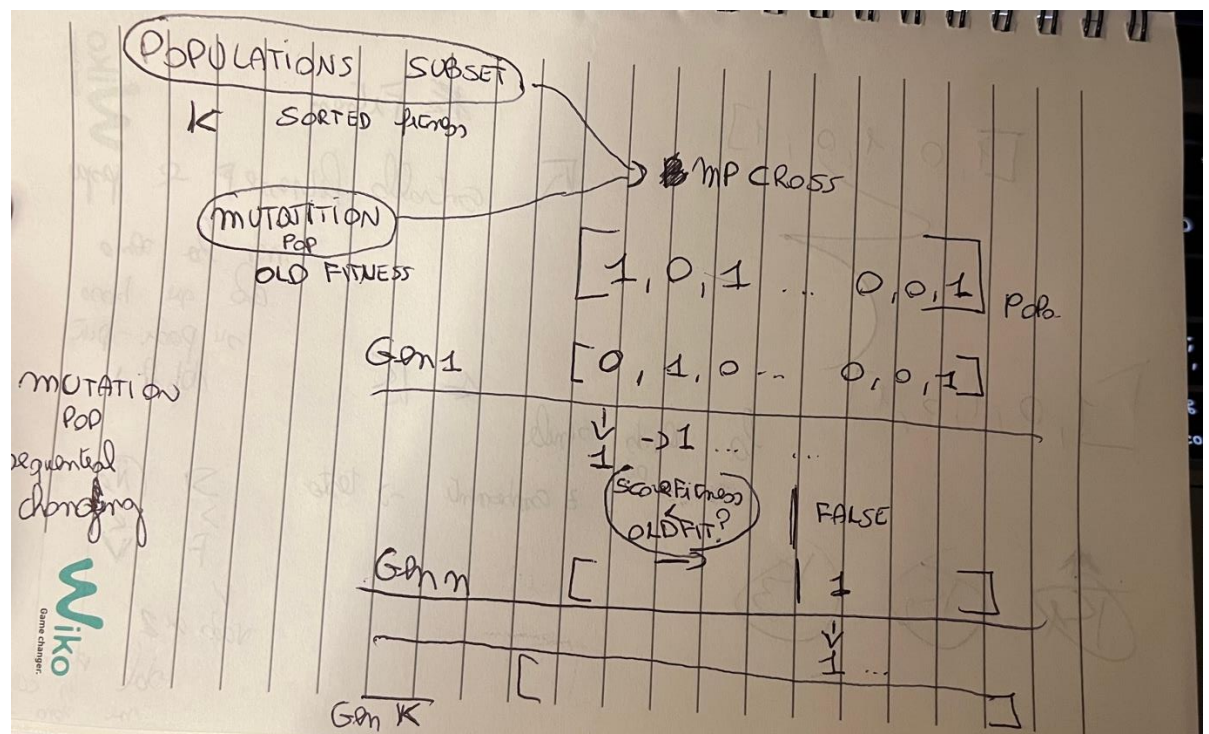 POPULATIONS SUBSET
K SORTED fitness
MP CROSS
MUTATITION
POP
OLD FITNESS
[1, 0, 1 ... 0, 0, 1]
Popo.
Gen 1 [0, 1, 0 ... 0, 0, 1]
MUTATION
POP
sequential
changing
-> 1 ... ...
1
ScoreFitness
<
OLDFIT?
FALSE
Gen n [ 1 ]
1 ...
[ ]
Gen K
Wiko
Game changer.